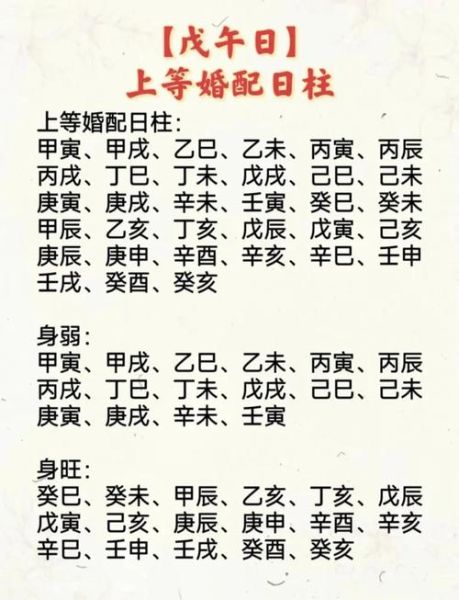 【戊午日】
上等婚配日柱
上等婚配日柱：
甲寅、甲戌、乙巳、乙未、丙寅、丙辰
丙戌、丁巳、丁未、戊戌、己巳、己未
庚寅、庚戌、辛未、壬寅、癸巳、癸未
甲辰、乙亥、丁亥、戊辰、戊寅、己亥
庚辰、庚申、辛酉、辛亥、辛巳、壬申
壬戌、癸酉、癸亥
身弱：
甲寅、甲戌、乙巳、乙未、丙寅、丙辰
丙戌、丁巳、丁未、戊戌、己巳、己未
庚寅、庚戌、辛未、壬寅
身旺：
癸巳、癸未、甲辰、乙亥、丁亥、戊辰
戊寅、己亥、庚辰、庚申、辛酉、辛亥
辛巳、壬申、壬戌、癸酉、癸亥